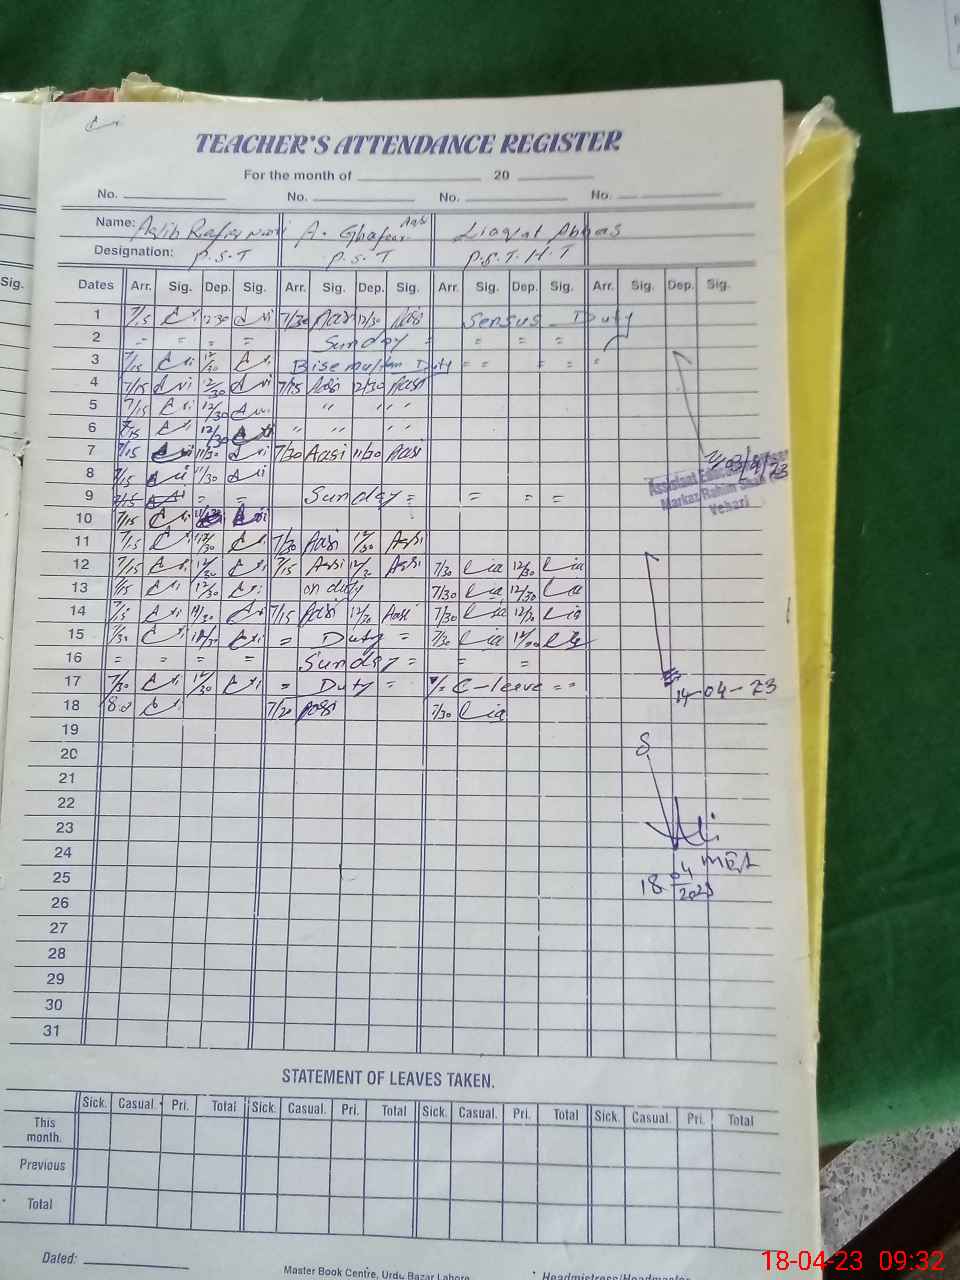 TEACHER'S ATTENDANCE REGISTER
For the month of 20
No. No. No. No.
Name: A. Ghafoor Aasi Liaqat Abbas
Designation: P.S.T P.S.T P.S.T. H.T
Sig. Dates Arr. Sig. Dep. Sig. Arr. Sig. Dep. Sig. Arr. Sig. Dep. Sig. Arr. Sig. Dep. Sig.
1 7/15 12/30 7/30 Aasi 12/30 Aasi Sensus Duty
2 = = = = Sunday = = = =
3 7/15 12/30 Bise multan Duty = = = = =
4 7/15 12/30 7/15 Aasi 12/30 Aasi
5 7/15 12/30 " " "
6 7/15 12/30 " " " "
7 7/15 11/30 7/30 Aasi 11/30 Aasi 03/4/23
8 7/15 11/30 Assistant Education
9 7/15 = = Sunday = = = = Markaz Rahim Shah
10 7/15 Vehari
11 7/15 12/30 7/30 Aasi 12/30 Aasi
12 7/15 12/30 7/15 Aasi 12/30 Aasi 7/30 Lia 12/30 Lia
13 7/15 12/30 on duty 7/30 Lia 12/30 Lia
14 7/15 11/30 7/15 Aasi 12/30 Aasi 7/30 Lia 12/30 Lia
15 7/30 = Duty = 7/30 Lia
16 = = = = Sunday = = =
17 7/30 12/30 = Duty = C-leave = =
14-04-23
18 8.0 7/20 Aasi 7/30 Lia
19
20
21
22
23
24 MEA
25 18 04/2023
26
27
28
29
30
31
STATEMENT OF LEAVES TAKEN.
Sick. Casual. Pri. Total Sick. Casual. Pri. Total Sick. Casual. Pri. Total Sick. Casual. Pri. Total
This month.
Previous
Total
Dated:
Master Book Centre, Urdu Bazar Lahore
Headmistress/Headmaster
18-04-23 09:32